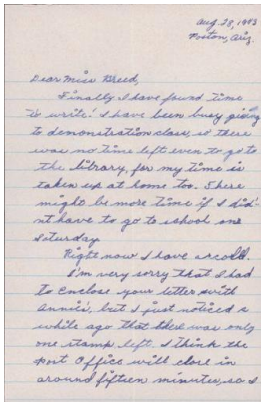 Aug. 28, 1943
Poston, Ariz.
Dear Miss Breed,
Finally I have found time
to write! I have been busy going
to demonstration class, so there
was no time left even to go to
the library, for my time is
taken up at home too. There
might be more time if I did-
n't have to go to school on
Saturday.
Right now I have a cold.
I'm very sorry that I had
to enclose your letter with
Annie's, but I just noticed a
while ago that there was only
one stamp left. I think the
Post Office will close in
around fifteen minutes, so I